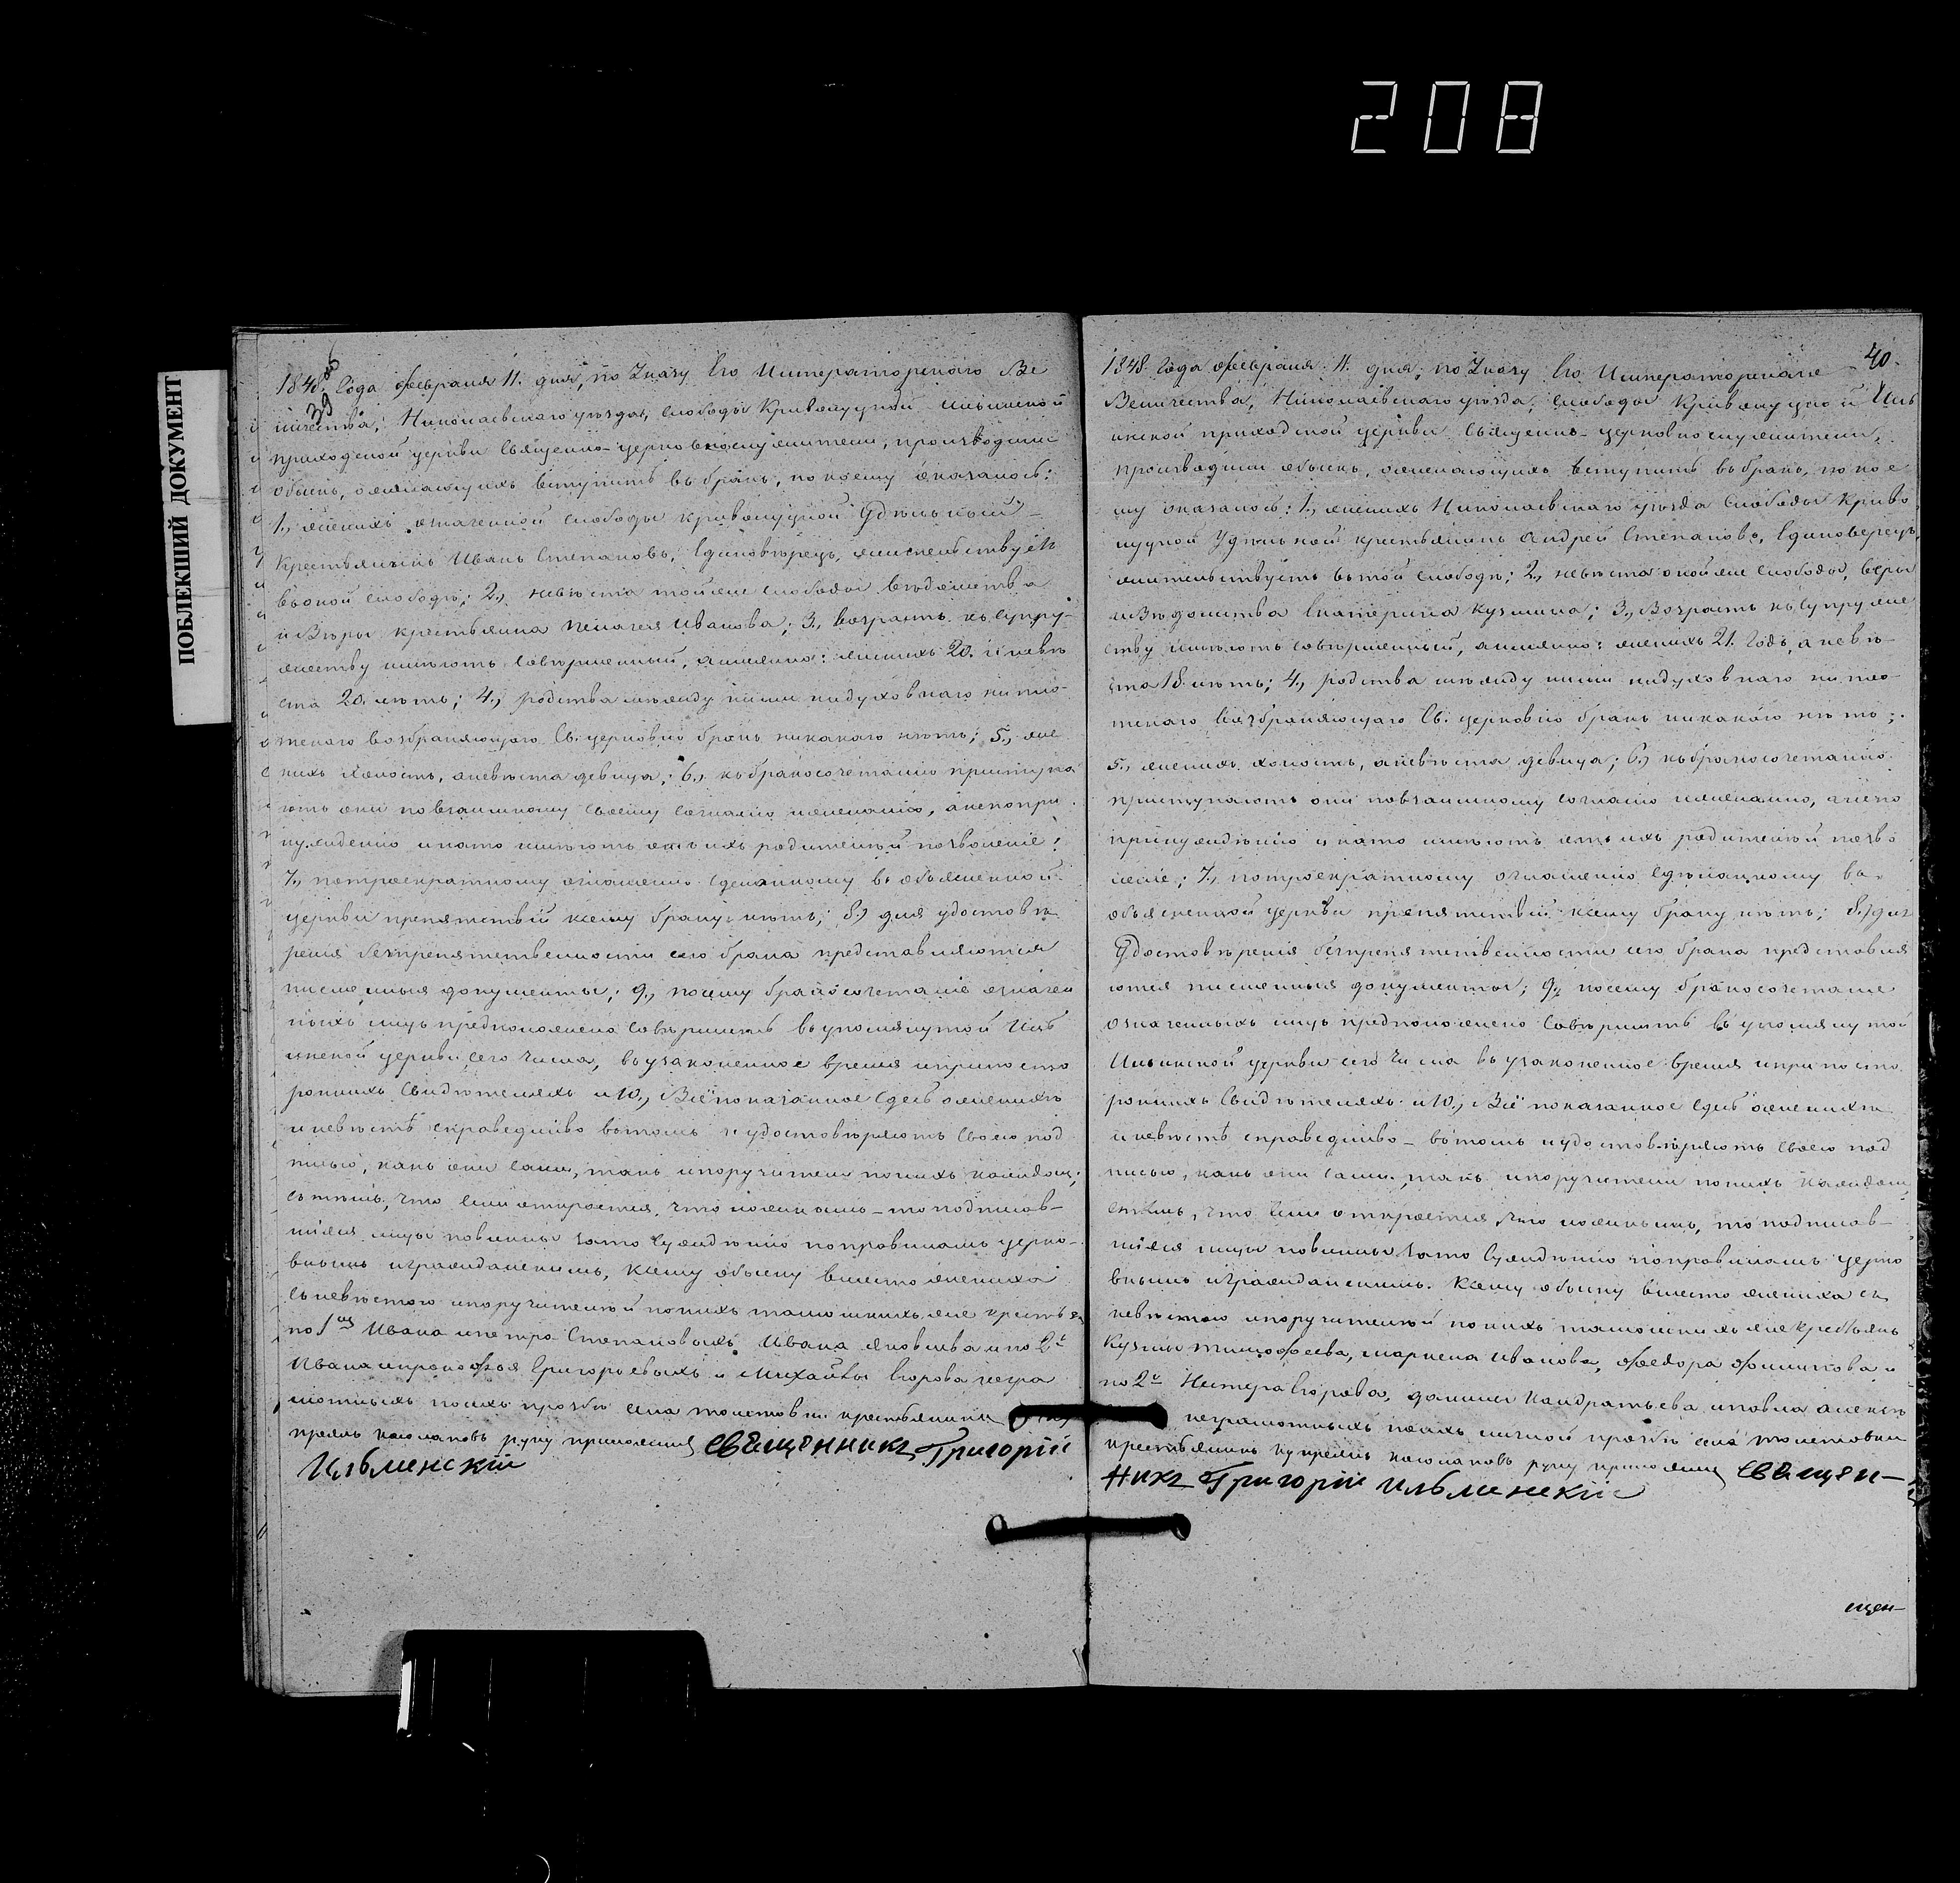 208
ПОБЛЕКШИЙ ДОКУМЕНТ
39
1848 Года февраля 11. дня, по Указу Его Императорскаго Ве
личества, Николаевскаго уѣзда, слободы Криволуцкой Ильинской
приходской церкви Священно-церковнослужители, производили
обыскъ, о желающихъ вступить въ бракъ, по коему оказалось:
1., женихъ означенной слободы Криволуцкой Удѣльный
Крестьянинъ Иванъ Степановъ, Единовѣрецъ, жительствуетъ
въ оной слободѣ; 2., невѣста той же слободы вѣдомства
и Вѣры крестьянка Пелагея Иванова; 3., возрастъ къ супру-
жеству имѣютъ совершенный, а именно: женихъ 20. и невѣ
ста 20. лѣтъ; 4., родства между ними ни духовнаго ни пло-
тскаго возбраняющаго Св. церковію бракъ никакого нѣтъ; 5., же
нихъ холостъ, а невѣста девица; 6., къ бракосочетанію приступа
ютъ они по взаимному своему согласію и желанію, а не по при
нужденію и на то имѣютъ отъ ихъ родителей позволеніе;
7., по троекратному оглашенію сделанному въ объясненной
церкви препятствій къ сему браку нѣтъ; 8., для удостовѣ
ренія безпрепятственности сего брака представляются
письменныя документы; 9., по сему бракосочетаніе означен
ныхъ лицъ предположено совершить въ упомянутой Иль
инской церкви, сего числа, въ узаконенное время и при посто
роннихъ свидѣтеляхъ и 10., Всё показанное сдесь о женихѣ
и невѣстѣ справедливо въ томъ и удостовѣряютъ своею под
писью, какъ они сами, такъ и поручители по нихъ каждой,
съ тѣмъ, что если откроется, что ложнымъ - то подписав-
шіяся лицы повинны за то сужденію по правиламъ церко-
внымъ и гражданскимъ, К сему обыску вместо жениха
съ невѣстою и поручителей по нихъ тамошнихъ же крестьян
по 1мъ Ивана и Петра Степановыхъ, Ивана Яковлева и по 2й
Ивана и Прокофья Григорьевыхъ и Михайлы Егорова негра
мотныхъ по ихъ прозбѣ села Толстовки крестьянинъ Ку
преянъ руку приложилъ Священникъ Григорій
Ильминскій
40.
1848 Года февраля 11. дня, по Указу Его Императорскаго
Величества, Николаевскаго уѣзда, слободы Криволуцкой Иль
инской приходской церкви Священно-церковнослужители,
производили обыскъ, о желающихъ вступить въ бракъ, по кое
му оказалось: 1., женихъ Николаевскаго уѣзда слободы Криво
луцкой Удѣльной крестьянинъ Андрей Степановъ, Единоверецъ,
жительствуетъ въ той слободѣ; 2., невѣста оной же слободы, веры
и Вѣдомства Екатерина Кузмина; 3., Возрастъ къ супруже
ству имѣютъ совершенный, а именно: женихъ 21. годъ, а невѣ-
ста 18. лѣтъ; 4., родства между ними ни духовнаго ни пло-
тскаго возбраняющаго Св. церковію бракъ никакого нѣтъ;
5., женихъ холостъ, а невѣста девица; 6., къ бракосочетанію
приступаютъ они по взаимному согласію и желанію, а не по
принужденію и на то имѣютъ отъ ихъ родителей позво
леніе; 7., по троекратному оглашенію сдѣланному во
объясненной церкви препятствій к сему браку нѣтъ; 8., для
Удостовѣренія безпрепятственности сего брака представля
ются письменныя документы; 9., по сему бракосочетаніе
означенныхъ лицъ предположено совершить въ упомянутой
Ильинской церкви сего числа въ узаконенное время и при посто
роннихъ свидѣтеляхъ и 10., Всё показанное сдесь о женихѣ
и невѣстѣ справедливо - въ томъ и удостовѣряютъ своею под
писью, какъ они сами, такъ и поручители по нихъ каждой,
съ тѣмъ, что если откроется что ложнымъ, то подписав-
шіяся лицы повинны за то сужденію по правиламъ церко
внымъ и гражданскимъ. К сему обыску вместо жениха съ
невѣстою и поручителей по нихъ тамошнихъ же крестьянъ
Кузмы Тимофеева, Маркела Иванова, Федора Филипова и
по 2й Нестера Егорова, Данилы Кандратьева и Павла Алексѣ
неграмотныхъ по ихъ личной прозбѣ села Толстовки
крестьянинъ Купреянъ руку приложилъ Священ-
никъ Григорій Ильминскій
щен-